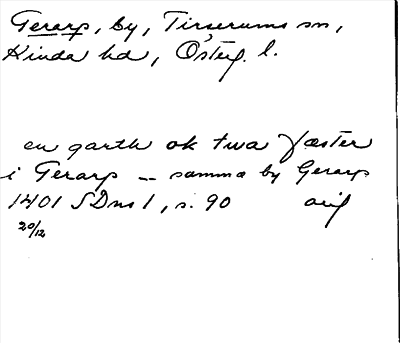 Gerarp, by, Tirserums sn,
Kinda hd, Österg. l.
en garth ok twa Jæster
i Gerarp -- samma by Gerarp
1401 SDns 1, s. 90 orig
20/12